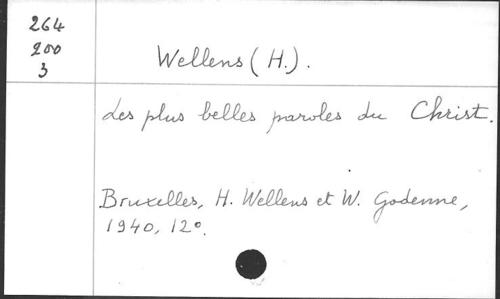 264
200
3
Wellens (H.).
Les plus belles paroles du Christ.
Bruxelles, H. Wellens et W. Godenne,
1940, 12°.